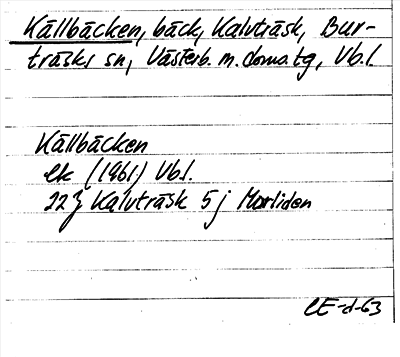 Källbäcken, bäck, Kalvträsk, Bur-
träsks sn, Västerb. m. domstg, Vb.l.
Källbäcken
ek (1961) Vbl.
22J Kalvträsk 5j Morliden
CE-d-63